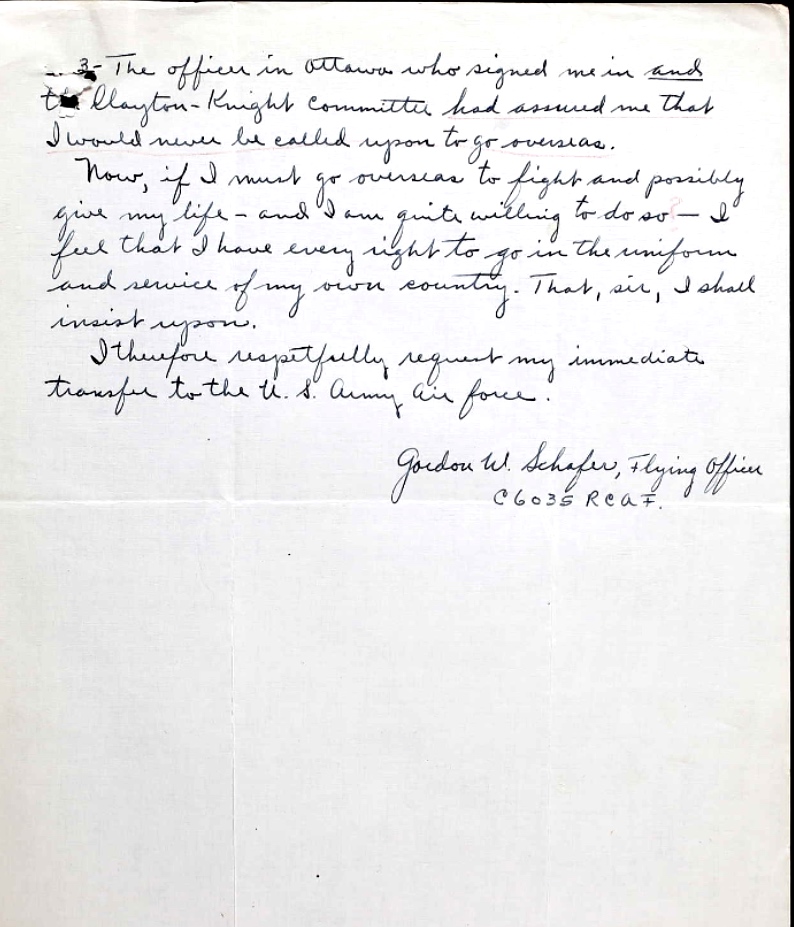 3- The officer in Ottawa who signed me in and
the Clayton-Knight Committee had assured me that
I would never be called upon to go overseas.
Now, if I must go overseas to fight and possibly
give my life - and I am quite willing to do so - I
feel that I have every right to go in the uniform
and service of my own country. That, sir, I shall
insist upon.
I therefore respetfully request my immediate
transfer to the U. S. Army Air force.
Gordon W. Schafer, Flying Officer
C6035 RCAF.